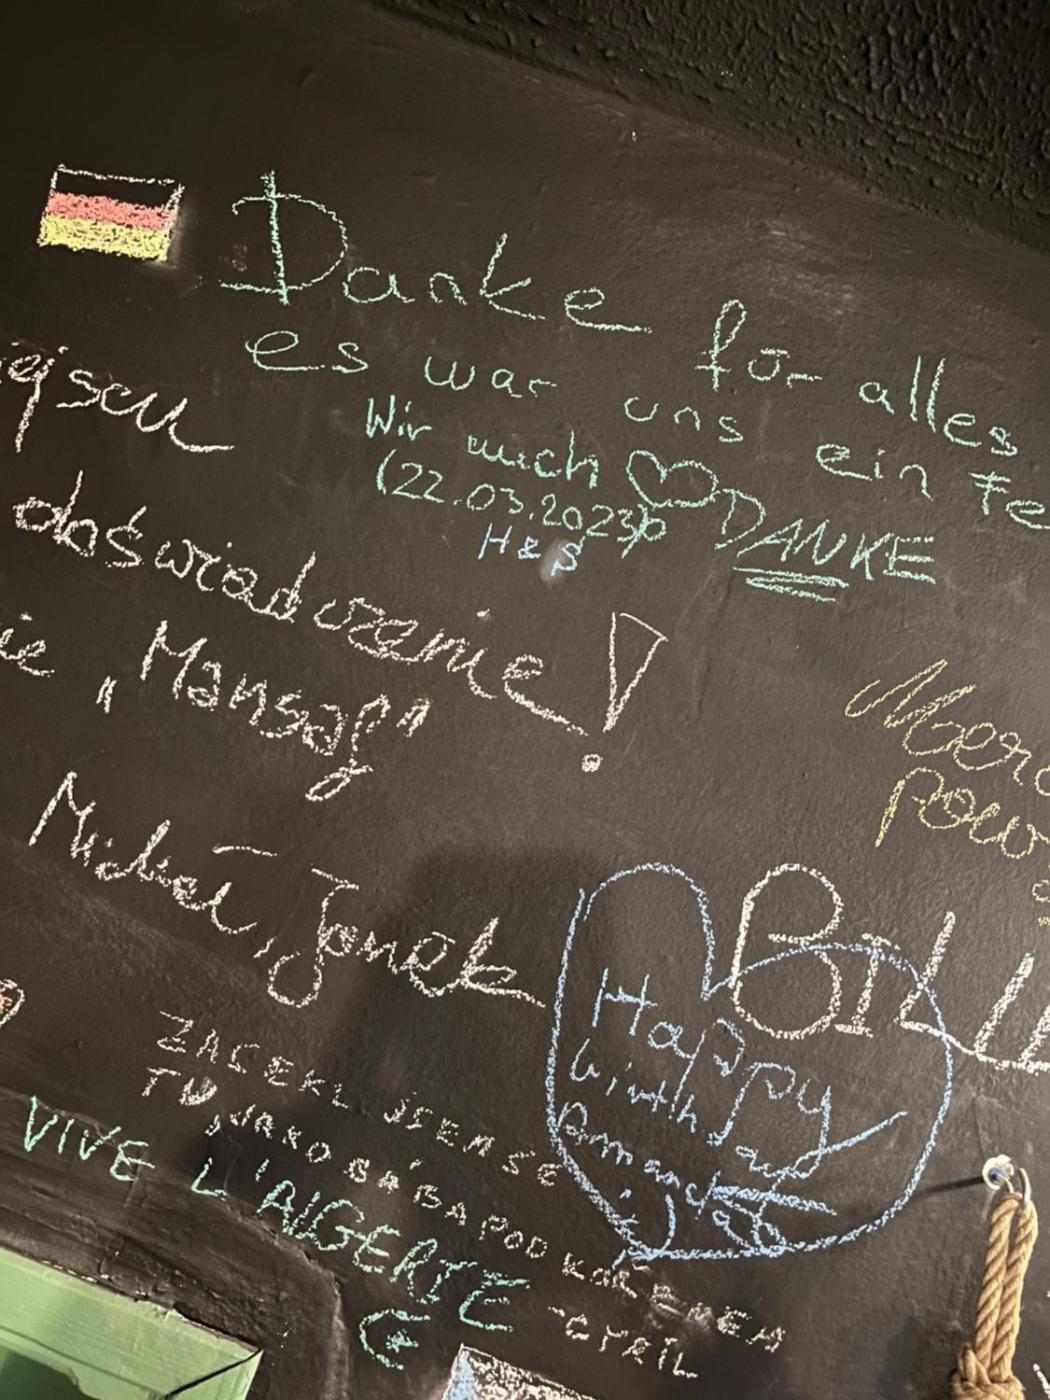 Danke für alles
es war uns ein Fe
Wir euch
DANKE
(22.03.2023)
H & S
doświadczenie!
ie „Mansaf"
Michał, Janek
BILL
Happy
birthday
Amanda
ZASEKL JSEM SE
TU, JAKO BÁBA POD KORÁBEM
-CYRIL
VIVE L'ALGERIE